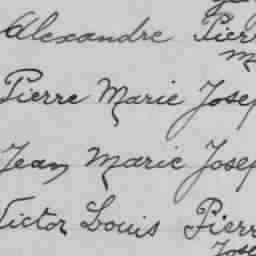 Alexandre Pierr
M
Pierre Marie Josep
Jean Marie Josep
Victor Louis Pierr
Jose